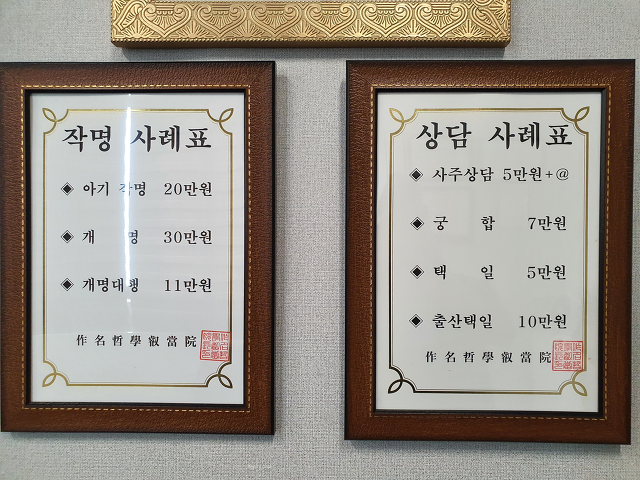 작명 사례표
◈ 아기 작명 20만원
◈ 개 명 30만원
◈ 개명대행 11만원
作名哲學叡當院
상담 사례표
◈ 사주상담 5만원+@
◈ 궁 합 7만원
◈ 택 일 5만원
◈ 출산택일 10만원
作名哲學叡當院